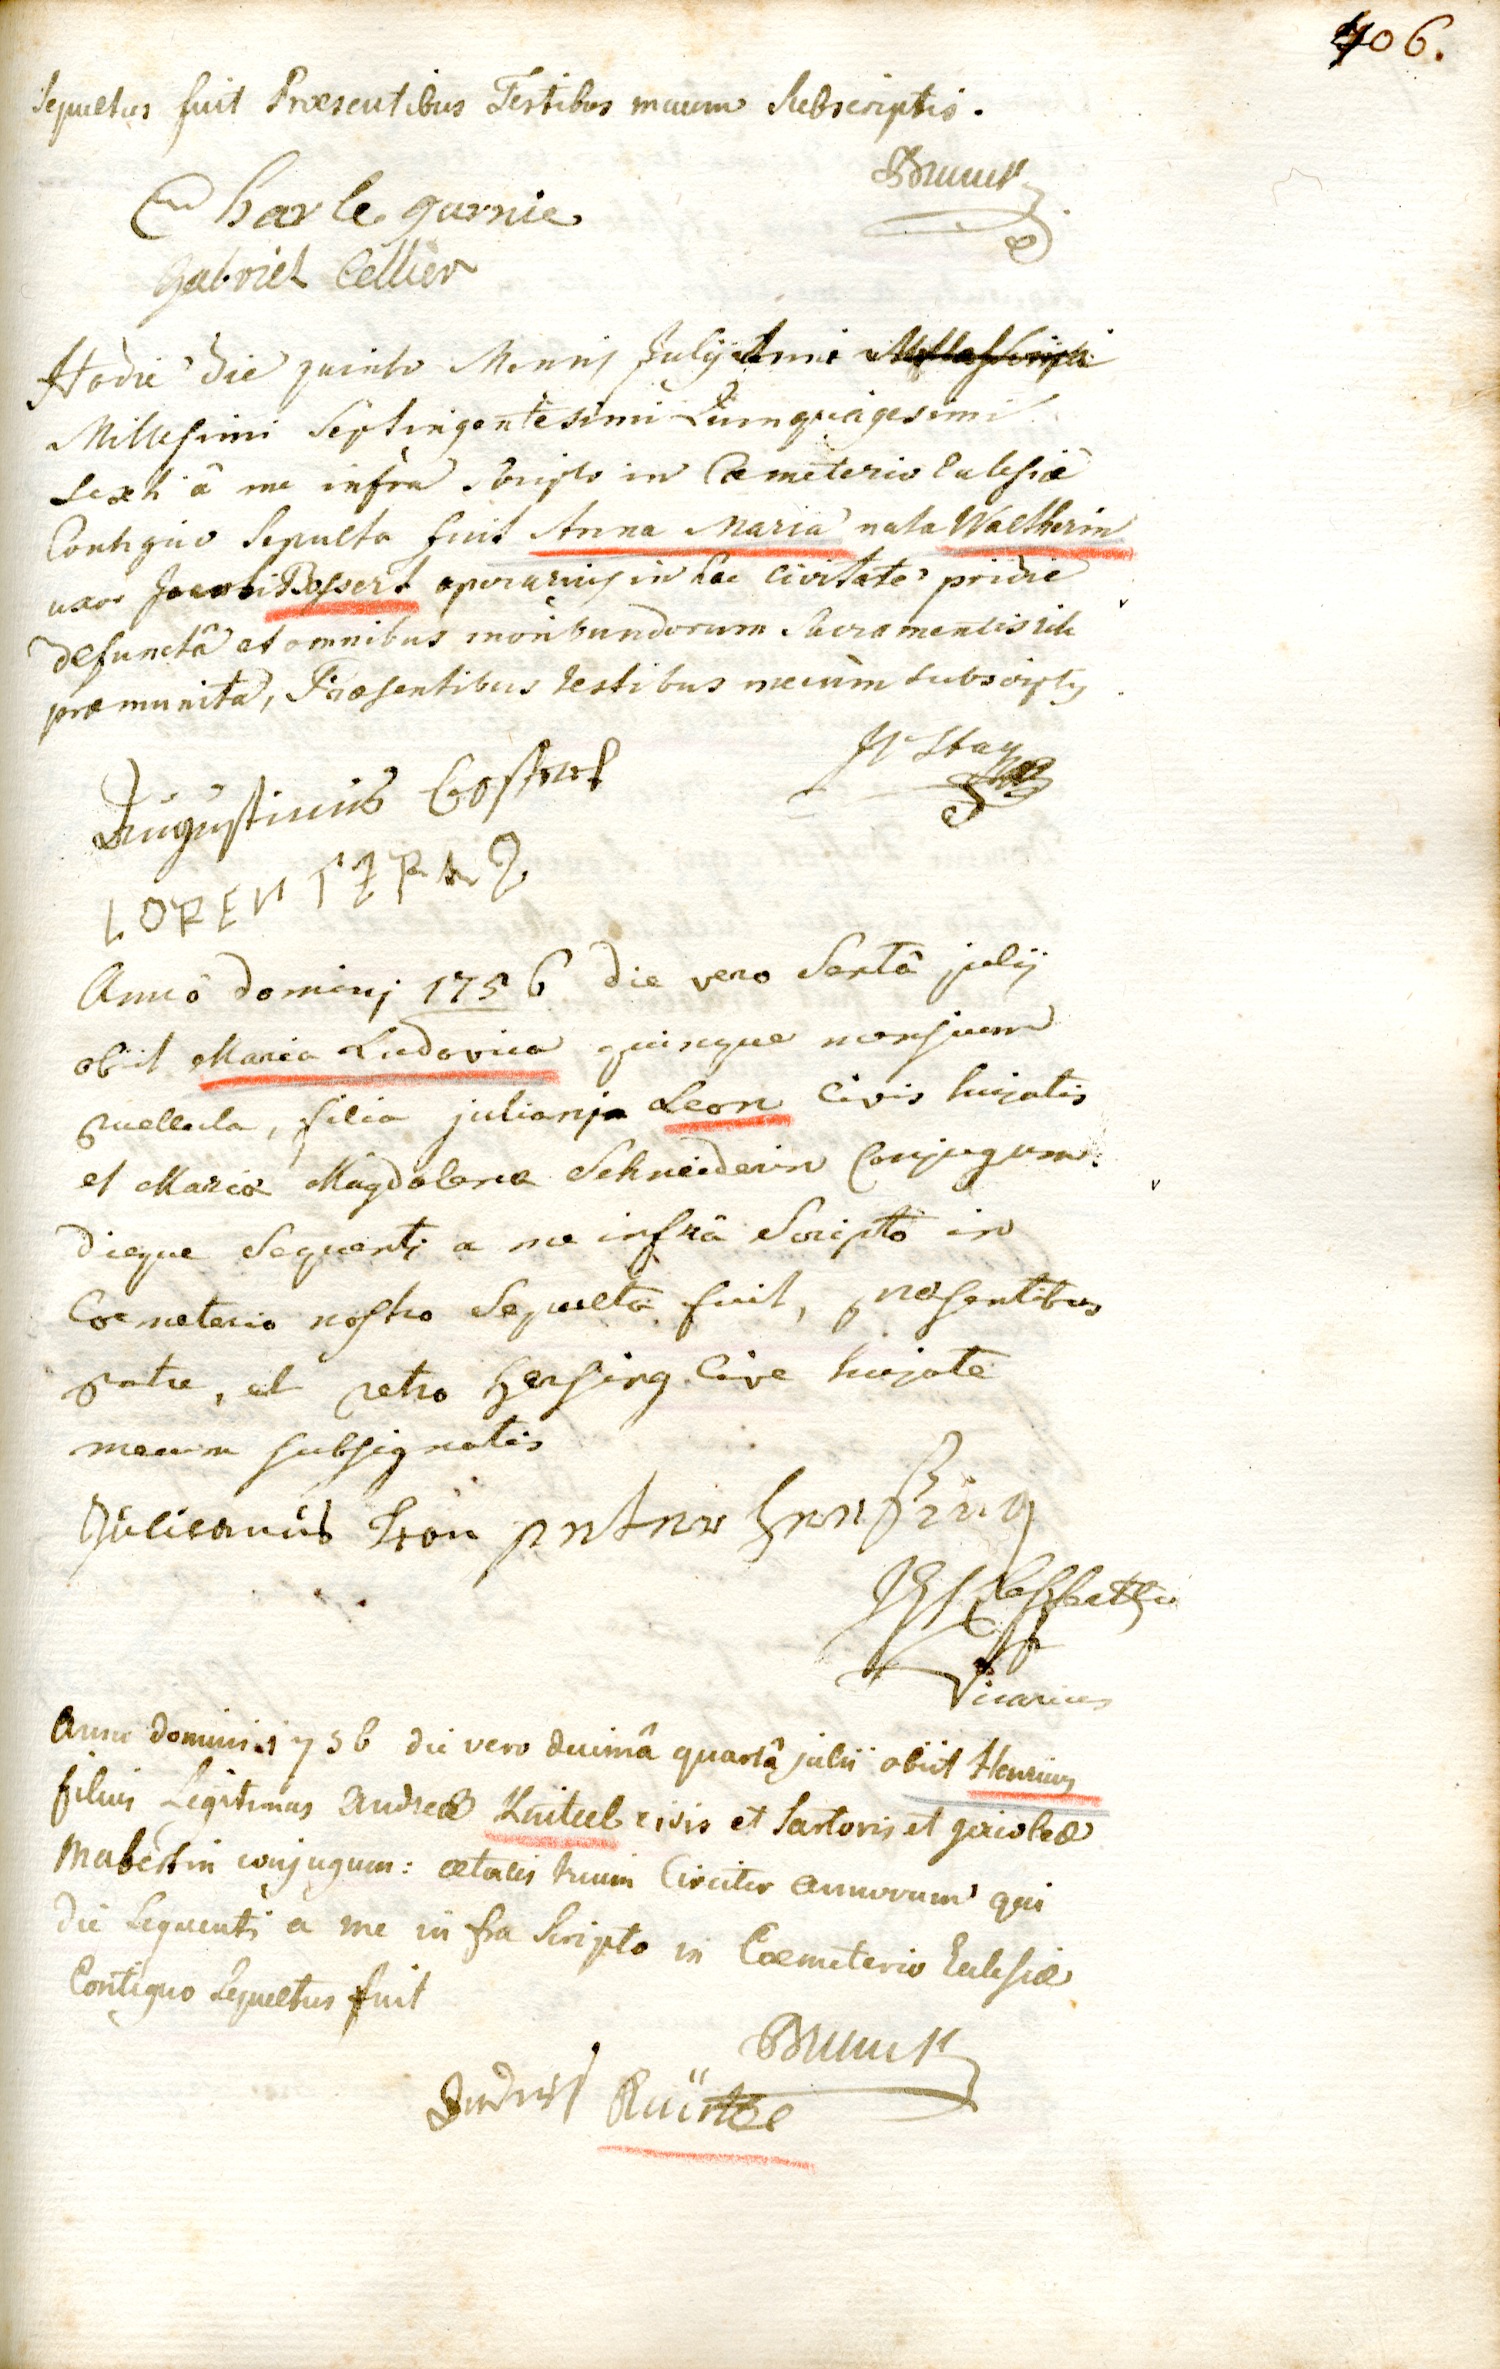 406.
sepultus fuit Præsentibus Testibus mecum Subscriptis.
Brunck
Charle garnie
gabriel Cellier
Hodie die quinto Mensis Julij Anni
Millesimi Septingentesimi Quinquagesimi
Sexti â me infra scripto in Cœmeterio Eclesiæ
Contiguo Sepulta fuit Anna Maria nata Waltherin
uxor Jacobi Bossert operarius in hac civitate pridie
defunctâ et omnibus moribundorum Sacramentis rite
præmunita, Præsentibus testibus mecum subscriptis
Augustinus
LORENTZ
Anno dominj 1756 die vero Sextâ julij
obiit Maria Ludovica quinque mensium
puellula, filia julianj Leon Civis hujatis
et Mariæ Magdalenæ Schneiderin Conjugum.
dieque Sequenti a me infrâ Scripto in
Cœmeterio nostro Sepulta fuit, præsentibus
patre, et petro hensing Cive hujate
mecum subsignatis
Julianus Leon peter hensing
Vicarius
Anno domini 1756 die vero decimâ quartâ julii obiit Henricus
filius Legitimus Andreæ Knitel civis et Sartoris et
conjugum: ætatis trium Circiter annorum qui
die sequenti a me infra Scripto in Cœmeterio Eclesiæ
Contiguo Sepultus fuit
Brunck